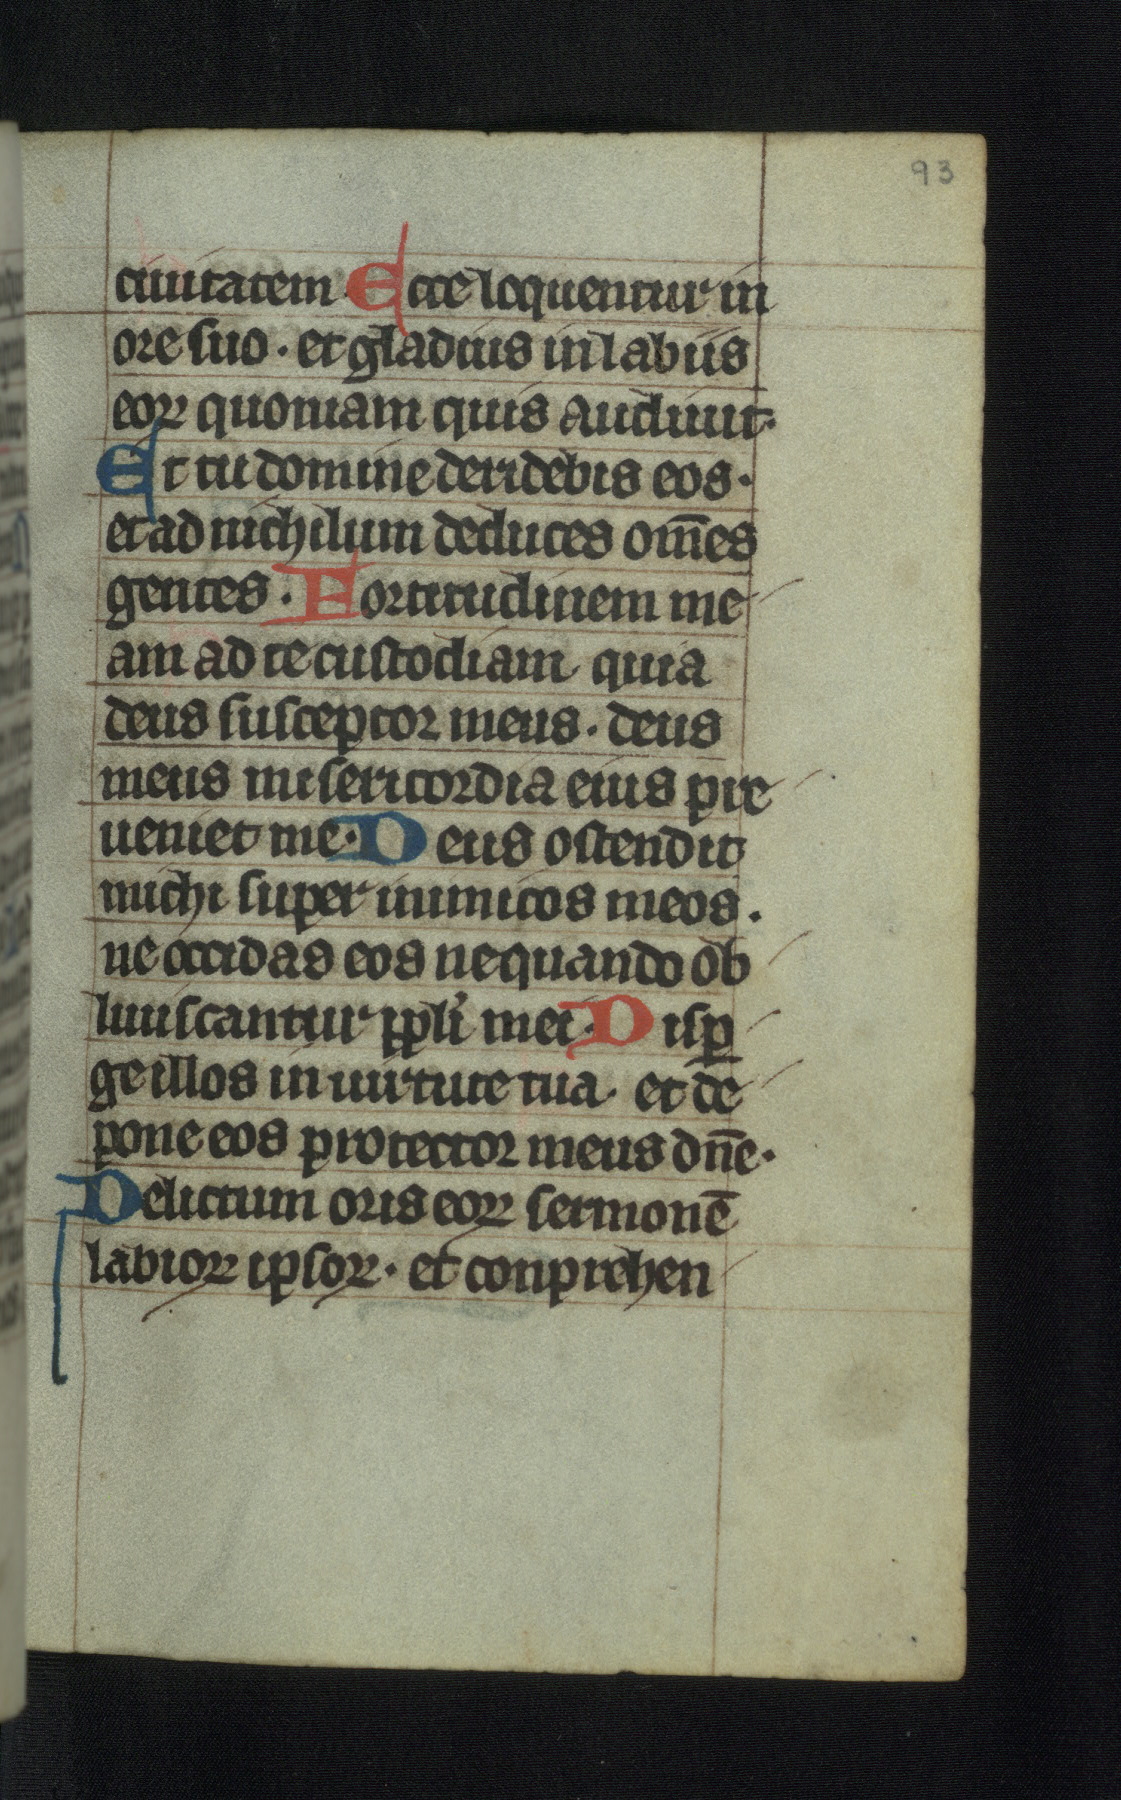 93
ciuitatem Ecce loquentur in
ore suo · et gladius in labiis
eoꝝ quoniam quis audiuit·
Et tu domine deridebis eos·
et ad nichilum deduces om̄es
gentes · Fortitudinem me
am ad te custodiam quia
deus susceptor meus · deus
meus misericordia eius pre
ueniet me· Deus ostendit
michi super inimicos meos .
ne occidas eos nequando ob
liuiscantur ppl'i mei · Disꝑ
ge illos in uirtute tua · et de
pone eos protector meus dn̄e·
Delictum oris eoꝝ sermonē
labioꝝ ipsoꝝ · et conprehen